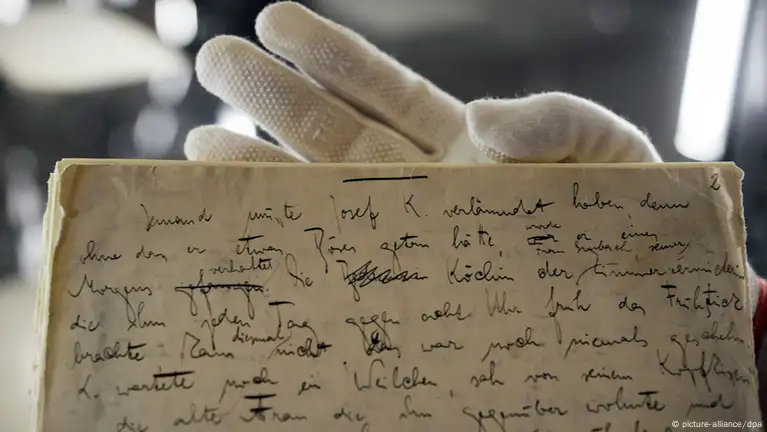 2
Jemand mußte Josef K. verläumdet haben, denn
ohne daß er etwas Böses getan hätte, wurde er eines
Frau Grubach, seiner
Morgens verhaftet. Die Köchin der Zimmervermieterin
die ihm jeden Tag gegen acht Uhr früh das Frühstück
brachte kam diesmal nicht. Das war noch niemals geschehn.
K. wartete noch ein Weilchen, sah von seinem Kopfkissen
die alte Frau die ihm gegenüber wohnte und
© picture-alliance/dpa